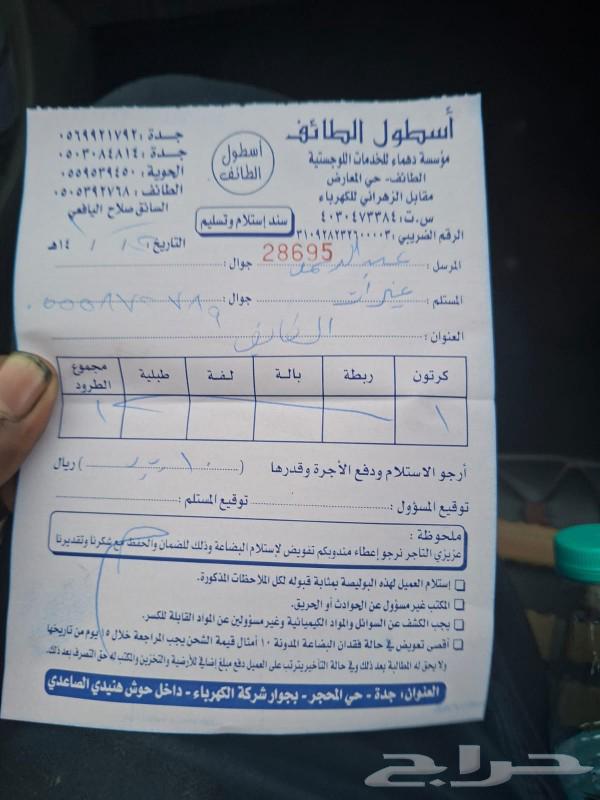 أسطول الطائف
مؤسسة دهماء للخدمات اللوجستية
الطائف - حي المعارض
مقابل الزهراني للكهرباء
س.ت: ٤٠٣٠٤٧٣٣٨٤
الرقم الضريبي: ٣١٠٩٢٨٢٣٢٦٠٠٠٠٣
أسطول
الطائف
سند إستلام وتسليم
28695
جدة: ٠٥٦٩٩٢١٧٩٢
جدة: ٠٥٠٣٠٨٤٨١٤
الحوية: ٠٥٥٩٥٣٩٤٥٠
الطائف: ٠٥٠٥٣٩٢٧٦٨
السائق صلاح اليافعي
التاريخ / / ١٤هـ
المرسل: جوال:
المستلم: جوال:
العنوان: الطائف
كرتون ربطة بالة لفة طبلية مجموع الطرود
١ ١
أرجو الاستلام ودفع الأجرة وقدرها ( ) ريال
توقيع المسؤول: توقيع المستلم:
ملحوظة:
عزيزي التاجر نرجو إعطاء مندوبكم تفويض لإستلام البضاعة وذلك للضمان والحفظ مع شكرنا وتقديرنا
إستلام العميل لهذه البوليصة بمثابة قبوله لكل الملاحظات المذكورة.
المكتب غير مسؤول عن الحوادث أو الحريق.
يجب الكشف عن السوائل والمواد الكيميائية وغير مسؤولين عن المواد القابلة للكسر.
أقصى تعويض في حالة فقدان البضاعة المدونة ١٠ أمثال قيمة الشحن يجب المراجعة خلال ١٥ يوم من تاريخها
ولا يحق له المطالبة بعد ذلك وفي حالة التأخير يترتب على العميل دفع مبلغ إضافي للأرضية والتخزين والكتب له حق التصرف بعد ذلك.
العنوان: جدة - حي المحجر - بجوار شركة الكهرباء - داخل حوش هنيدي الصاعدي
حراج